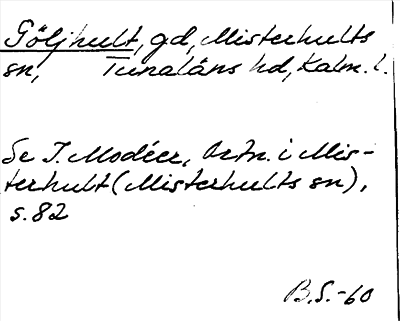 Göljhult, gd, Misterhults
sn, Tunaläns hd, Kalm. l.
Se I. Modéer, Ortn. i Mis-
terhult (Misterhults sn),
s. 82
B.S.-60